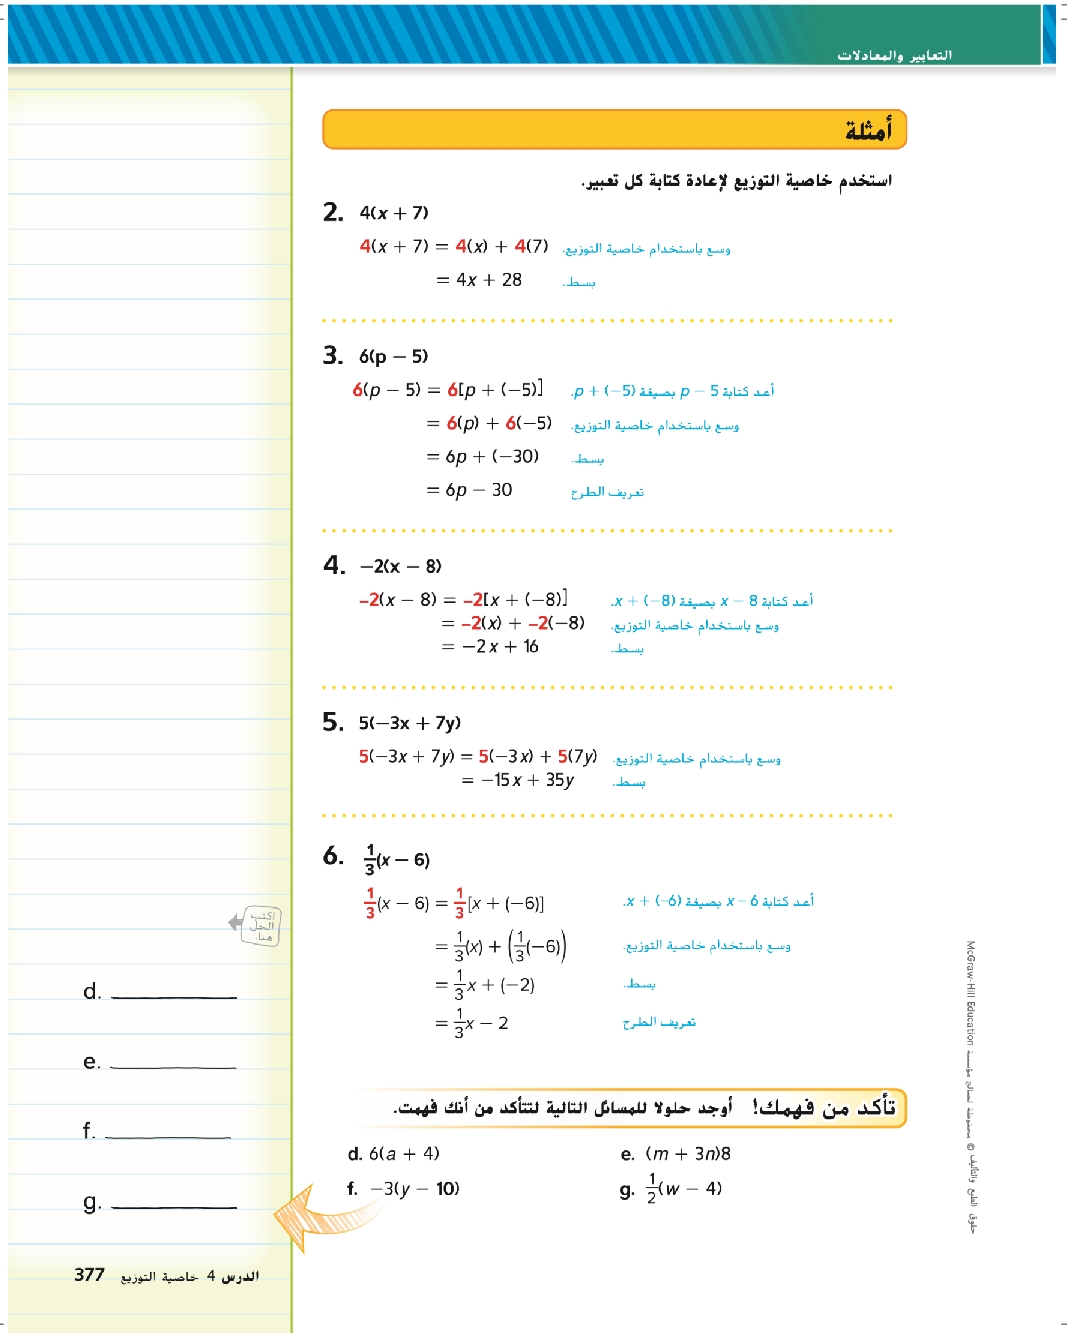 التعابير والمعادلات
أمثلة
استخدم خاصية التوزيع لإعادة كتابة كل تعبير.
2. 4(x + 7)
4(x + 7) = 4(x) + 4(7) وسع باستخدام خاصية التوزيع.
= 4x + 28 بسط.
3. 6(p − 5)
6(p − 5) = 6[p + (−5)] أعد كتابة p − 5 بصيغة p + (−5).
= 6(p) + 6(−5) وسع باستخدام خاصية التوزيع.
= 6p + (−30) بسط.
= 6p − 30 تعريف الطرح
4. −2(x − 8)
−2(x − 8) = −2[x + (−8)] أعد كتابة x − 8 بصيغة x + (−8).
= −2(x) + −2(−8) وسع باستخدام خاصية التوزيع.
= −2x + 16 بسط.
5. 5(−3x + 7y)
5(−3x + 7y) = 5(−3x) + 5(7y) وسع باستخدام خاصية التوزيع.
= −15x + 35y بسط.
6. 1/3(x − 6)
1/3(x − 6) = 1/3[x + (−6)] أعد كتابة x − 6 بصيغة x + (−6).
= 1/3(x) + (1/3(−6)) وسع باستخدام خاصية التوزيع.
= 1/3x + (−2) بسط.
= 1/3x − 2 تعريف الطرح
تأكد من فهمك! أوجد حلولا للمسائل التالية لتتأكد من أنك فهمت.
d. 6(a + 4) e. (m + 3n)8
f. −3(y − 10) g. 1/2(w − 4)
اكتب
الحل
هنا.
d.
e.
f.
g.
377 الدرس 4 خاصية التوزيع
حقوق الطبع والتأليف © محفوظة لصالح مؤسسة McGraw-Hill Education